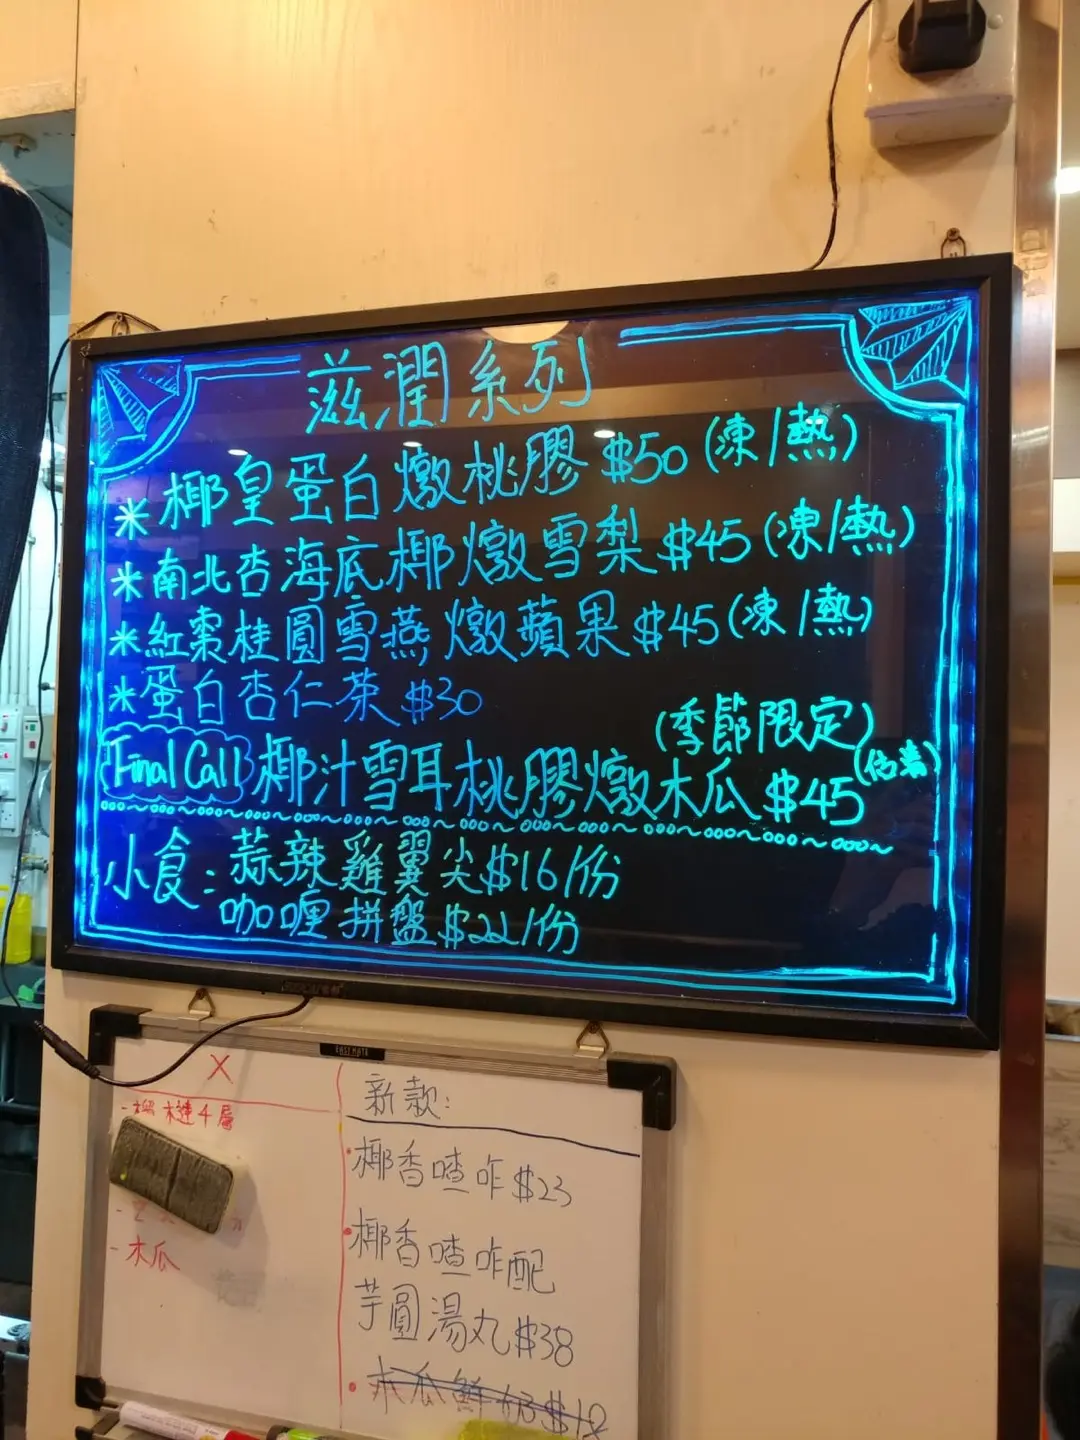 滋潤系列
* 椰皇蛋白燉桃膠 $50 (凍/熱)
* 南北杏海底椰燉雪梨 $45 (凍/熱)
* 紅棗桂圓雪燕燉蘋果 $45 (凍/熱)
* 蛋白杏仁茶 $30
(季節限定)
Final Call 椰汁雪耳桃膠燉木瓜 $45
小食: 蒜辣雞翼尖 $16/份
咖喱拼盤 $22/份
X
- 榴槤4層
- 木瓜
新款:
• 椰香喳咋 $23
• 椰香喳咋配
芋圓湯丸 $38
• 木瓜鮮奶 $18